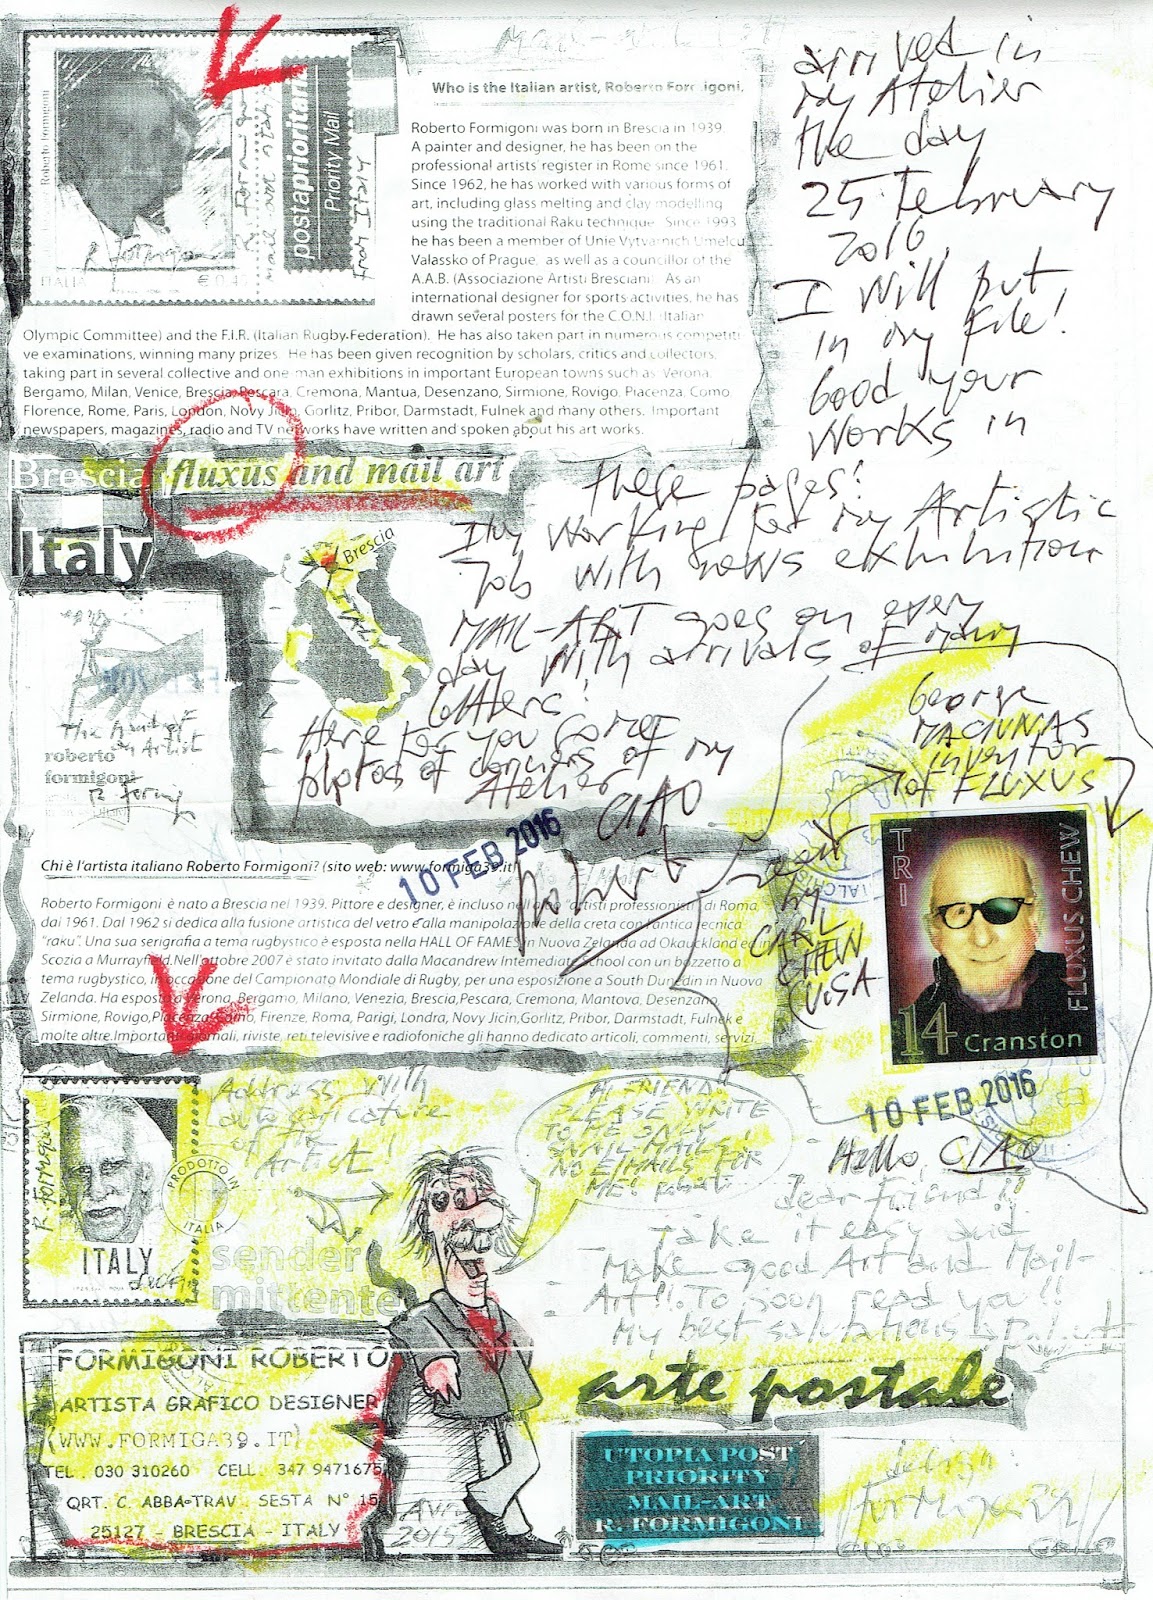 Who is the Italian artist, Roberto Formigoni.
Roberto Formigoni was born in Brescia in 1939.
A painter and designer, he has been on the
professional artists register in Rome since 1961.
Since 1962, he has worked with various forms of
art, including glass melting and clay modelling
using the traditional Raku technique. Since 1993
he has been a member of Unie Vytvarnich Umelcu
Valassko of Prague, as well as a councillor of the
A.A.B. (Associazione Artisti Bresciani. As an
international designer for sports activities, he has
drawn several posters for the C.O.N.I. Italian
Olympic Committee) and the F.I.R. (Italian Rugby Federation). He has also taken part in numerous competiti
ve examinations, winning many prizes. He has been given recognition by scholars, critics and collectors,
taking part in several collective and one-man exhibitions in important European towns such as Verona,
Bergamo, Milan, Venice, Brescia, Pescara, Cremona, Mantua, Desenzano, Sirmione, Rovigo, Piacenza, Como,
Florence, Rome, Paris, London, Novy Jicin, Gorlitz, Pribor, Darmstadt, Fulnek and many others. Important
newspapers, magazines, radio and TV networks have written and spoken about his art works.
Roberto Formigoni
R. Formigoni
mail art
postaprioritaria
Priority Mail
from Italy
R Formigoni
ITALIA
arrived in
my Atelier
the day
25 February
2016
I will put
in my File!
Good your
works in
these pages!
I my working for my Artistic
Job with news exhibition
MAIL-ART goes on every
day with arrivals of many
letters!
Here for you some
photos of corners of my
Atelier
CIAO
Roberto
Brescia fluxus and mail art
Italy
Brescia
ITALY
roberto
formigoni
R. Formig
10 FEB 2016
George
MACIUNAS
inventor
of FLUXUS
by
CARL
CHEW
(USA
TRI
FLUXUS CHEW
14
Cranston
10 FEB 2016
Chi è l'artista italiano Roberto Formigoni? (sito web: www.formiga39.it)
Roberto Formigoni è nato a Brescia nel 1939. Pittore e designer, è incluso nell'albo "artisti professionisti" di Roma
dal 1961. Dal 1962 si dedica alla fusione artistica del vetro e alla manipolazione della creta con l'antica tecnica
"raku". Una sua serigrafia a tema rugbystico è esposta nella HALL OF FAMES in Nuova Zelanda ad Okauckland ed in
Scozia a Murrayfield. Nell'ottobre 2007 è stato invitato dalla Macandrew Intemediate School con un bozzetto a
tema rugbystico, in occasione del Campionato Mondiale di Rugby, per una esposizione a South Dunedin in Nuova
Zelanda. Ha esposto a Verona, Bergamo, Milano, Venezia, Brescia, Pescara, Cremona, Mantova, Desenzano,
Sirmione, Rovigo, Piacenza, Como, Firenze, Roma, Parigi, Londra, Novy Jicin, Gorlitz, Pribor, Darmstadt, Fulnek e
molte altre. Importanti giornali, riviste, reti televisive e radiofoniche gli hanno dedicato articoli, commenti, servizi.
R. Formigoni
ITALY
PRODOTTO IN
ITALIA
Address with
autocaricature
of the
Artist!
HI FRIEND
PLEASE WRITE
TO ME ONLY
SNAIL MAILS!
NO EMAILS FOR
ME!
Hello, CIAO
Dear Friend!!
Take it easy and
Make good Art and Mail-
Art!! To soon read you!!
My best salutations
sender
mittente
FORMIGONI ROBERTO
ARTISTA GRAFICO DESIGNER
(WWW.FORMIGA39.IT)
TEL. 030 310260 CELL. 347 9471675
QRT. C. ABBA-TRAV. SESTA N° 15
25127 - BRESCIA - ITALY
2015
arte postale
UTOPIA POST
PRIORITY
MAIL-ART
R. FORMIGONI
design: